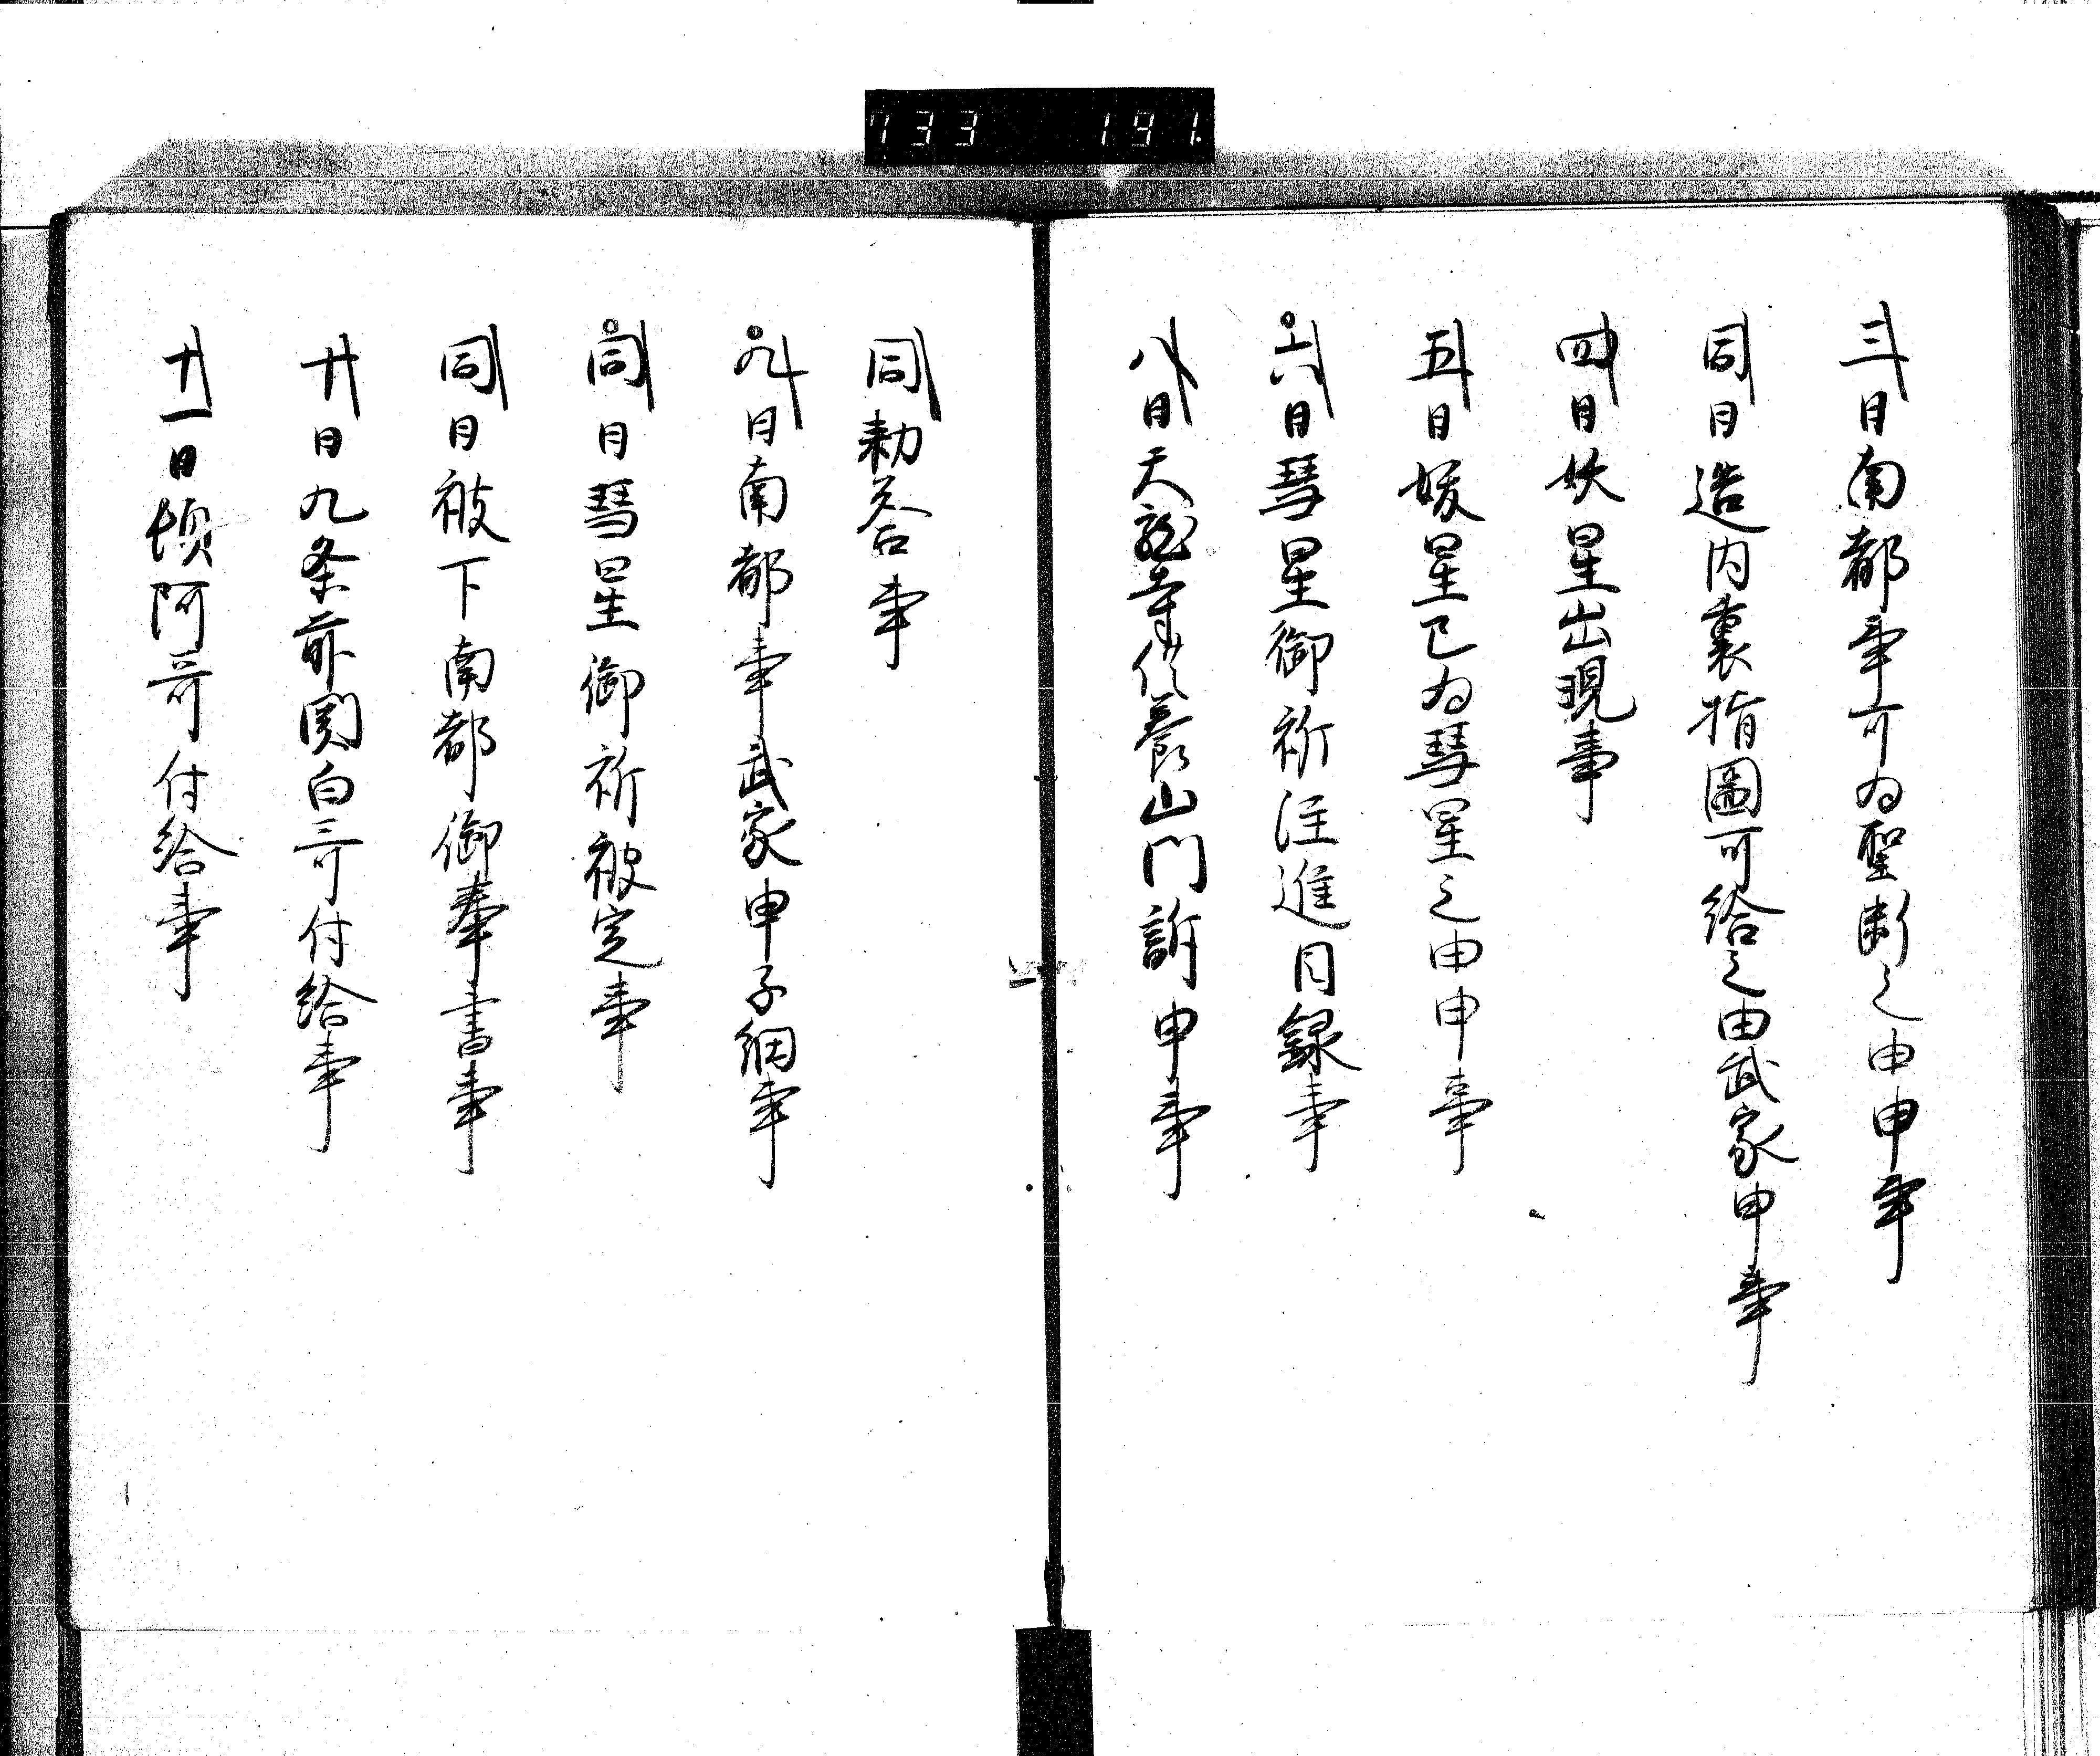 733 191.
三日南都事可為聖断之由申事
同日造内裏指圖可給之由武家申事
四日妖星出現事
五日妖星已為彗星之由申事
六日彗星御祈注進目録事
八日天龍寺供養山門訴申事
同勅答事
九日南都事武家申子細事
同日彗星御祈被定事
同日被下南都御奉書事
十日九条前関白三可付給事
十一日頓阿哥付給事